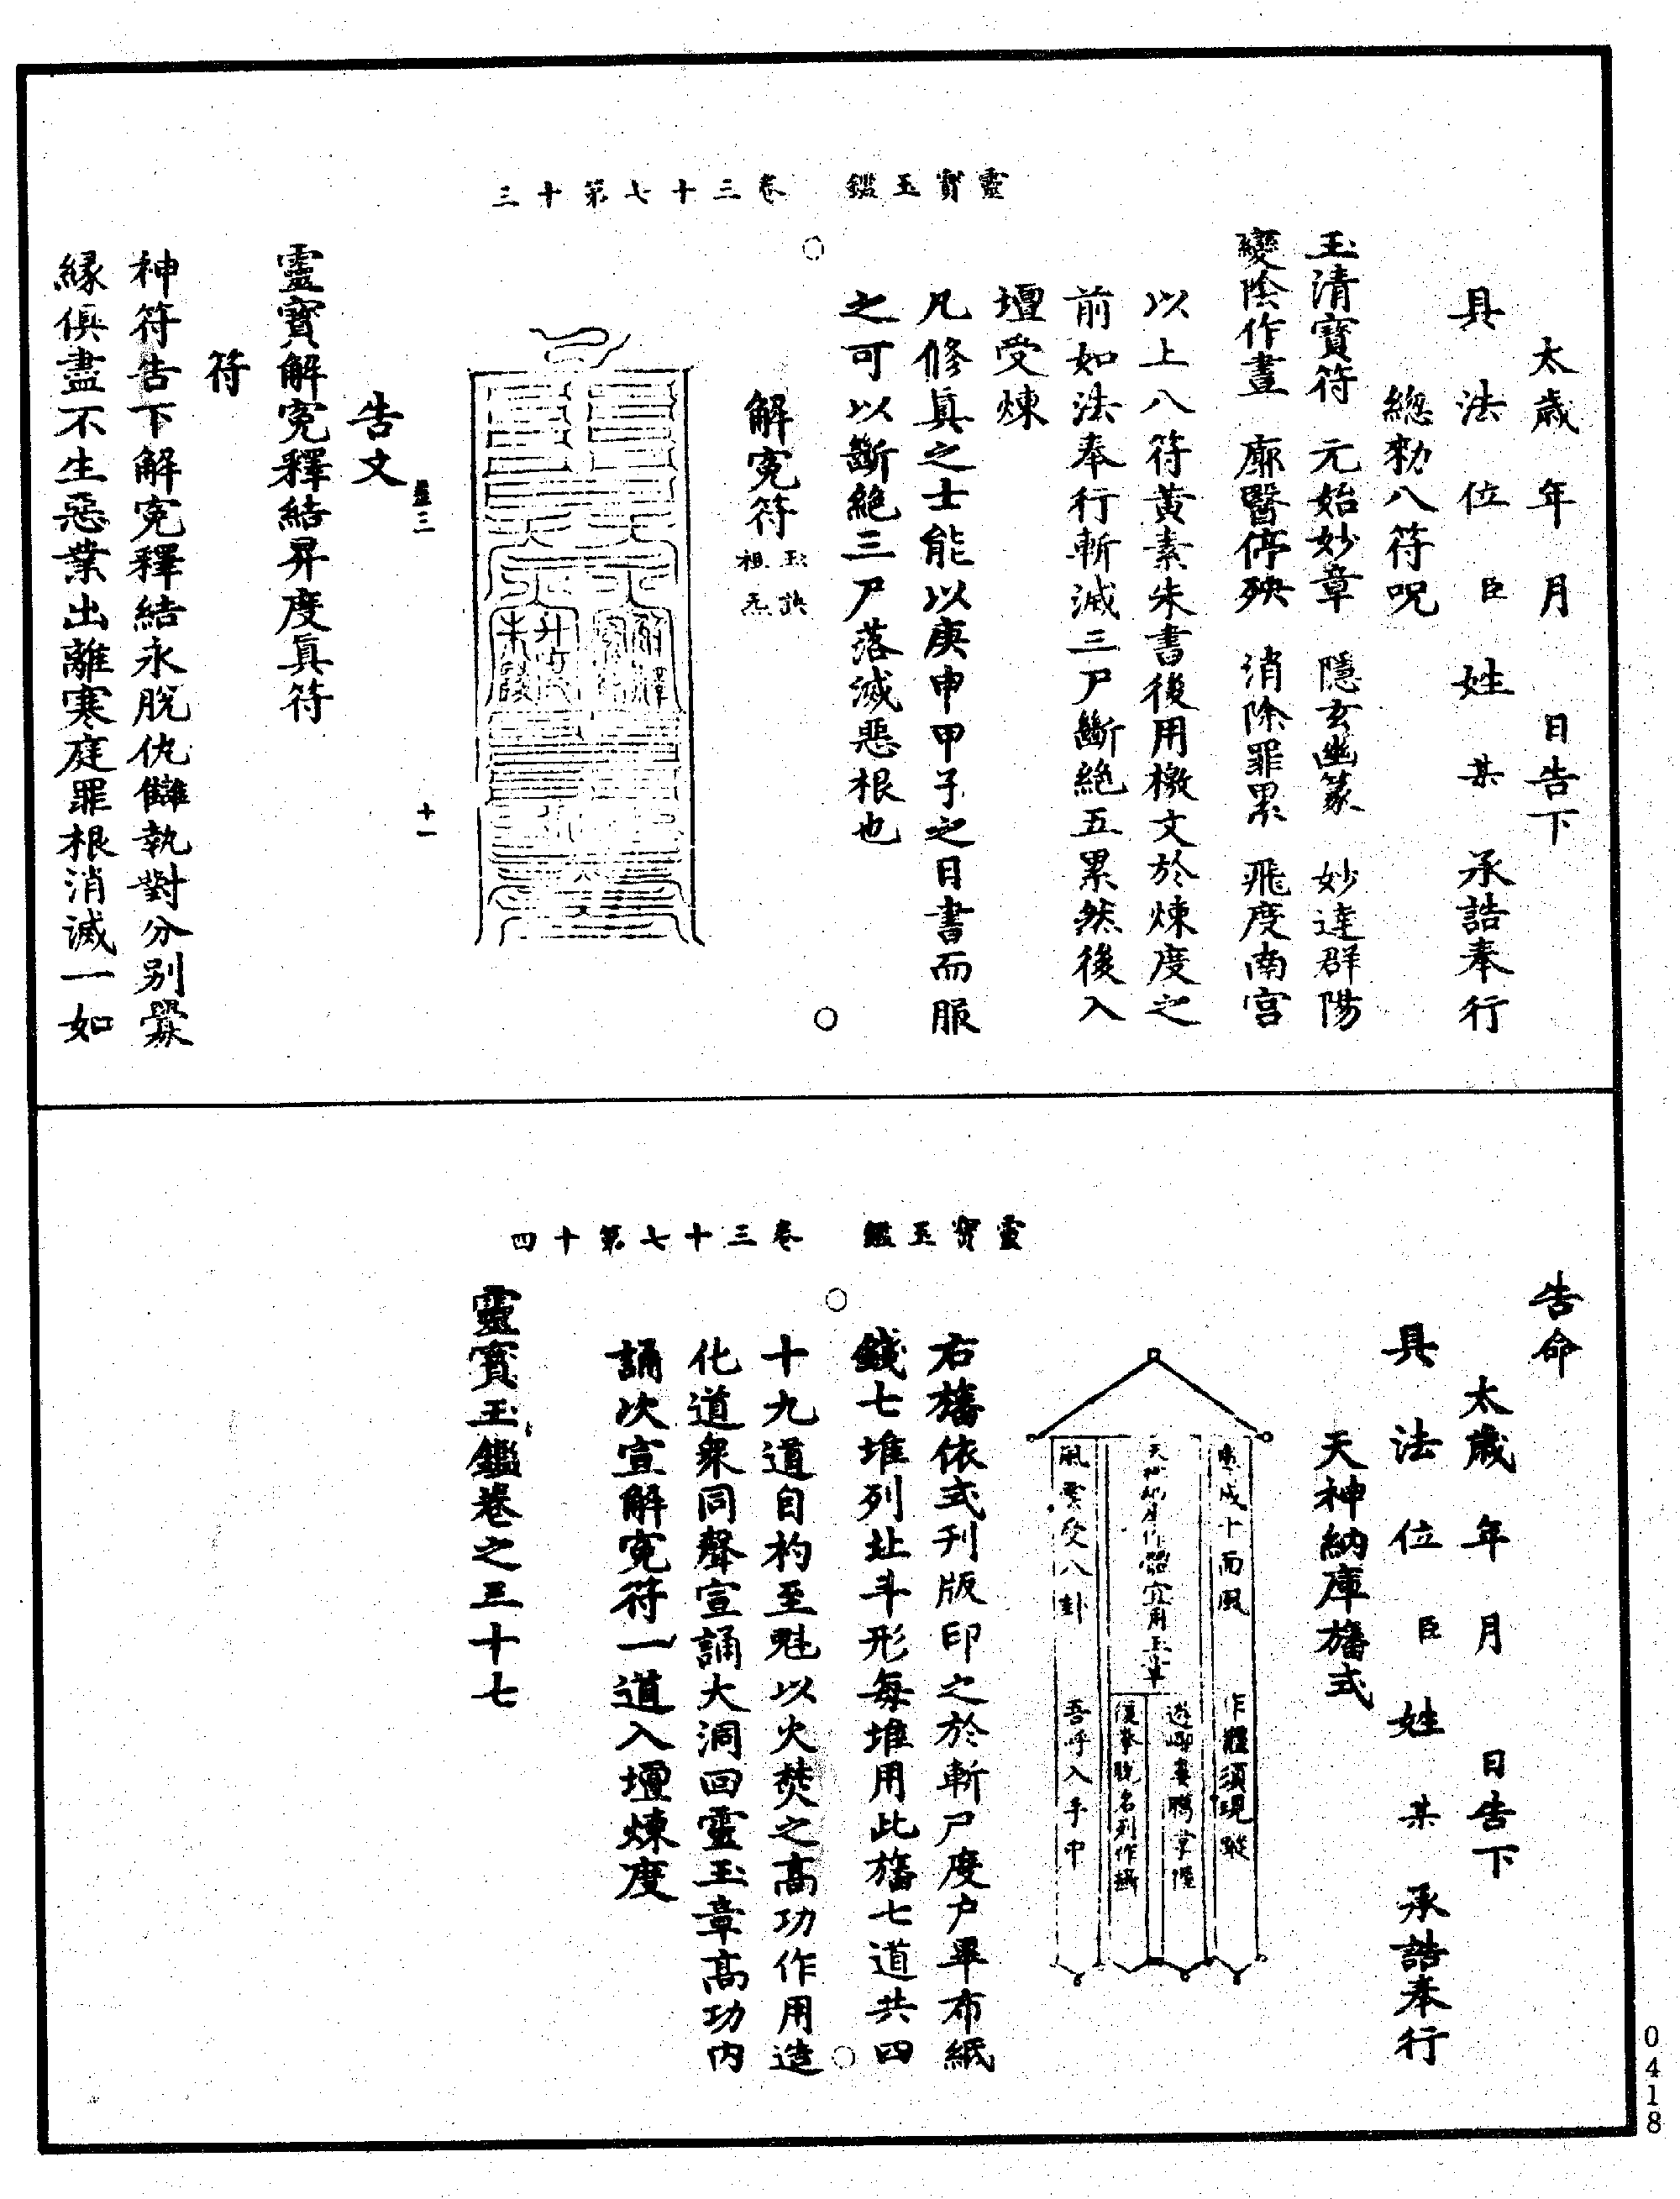 靈寶玉鑑　卷三十七第十三
太歲　年　月　日告下
具　法　位　臣　姓　某　承誥奉行
總勑八符呪
玉清寶符　元始妙章　隱玄幽篆　妙達群陽
變陰作晝　廓翳停殃　消除罪累　飛度南宫
以上八符黃素朱書後用檄文於煉度之
前如法奉行斬滅三尸斷絶五累然後入
壇受煉
凡修真之士能以庚申甲子之日書而服
之可以斷絶三尸落滅惡根也
解寃符
告文
十一
靈寶解寃釋結昇度真符
符
神符告下解寃釋結永脫仇讎執對分别釁
緣俱盡不生惡業出離寒庭罪根消滅一如
靈寶玉鑑　卷三十七第十四
告命
太歲　年　月　日告下
具　法　位　臣　姓　某　承誥奉行
天神納庫旛式
作　須現
吾乎入手中
右旛依式刋版印之於斬尸度户畢布紙
錢七堆列壯斗形每堆用此旛七道共四
十九道自杓至魁以火焚之高功作用造
化道衆同聲宣誦大洞回靈玉章高功内
誦次宣解寃符一道入壇煉度
靈寶玉鑑卷之三十七
0418